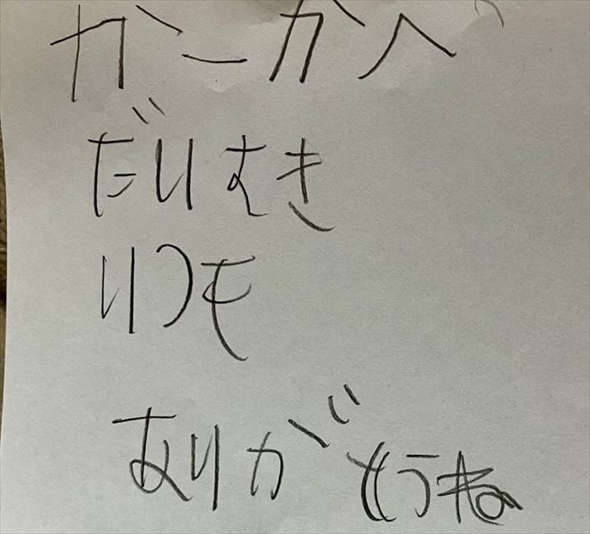 ガーガへ
だいすき
いつも
ありがとうね